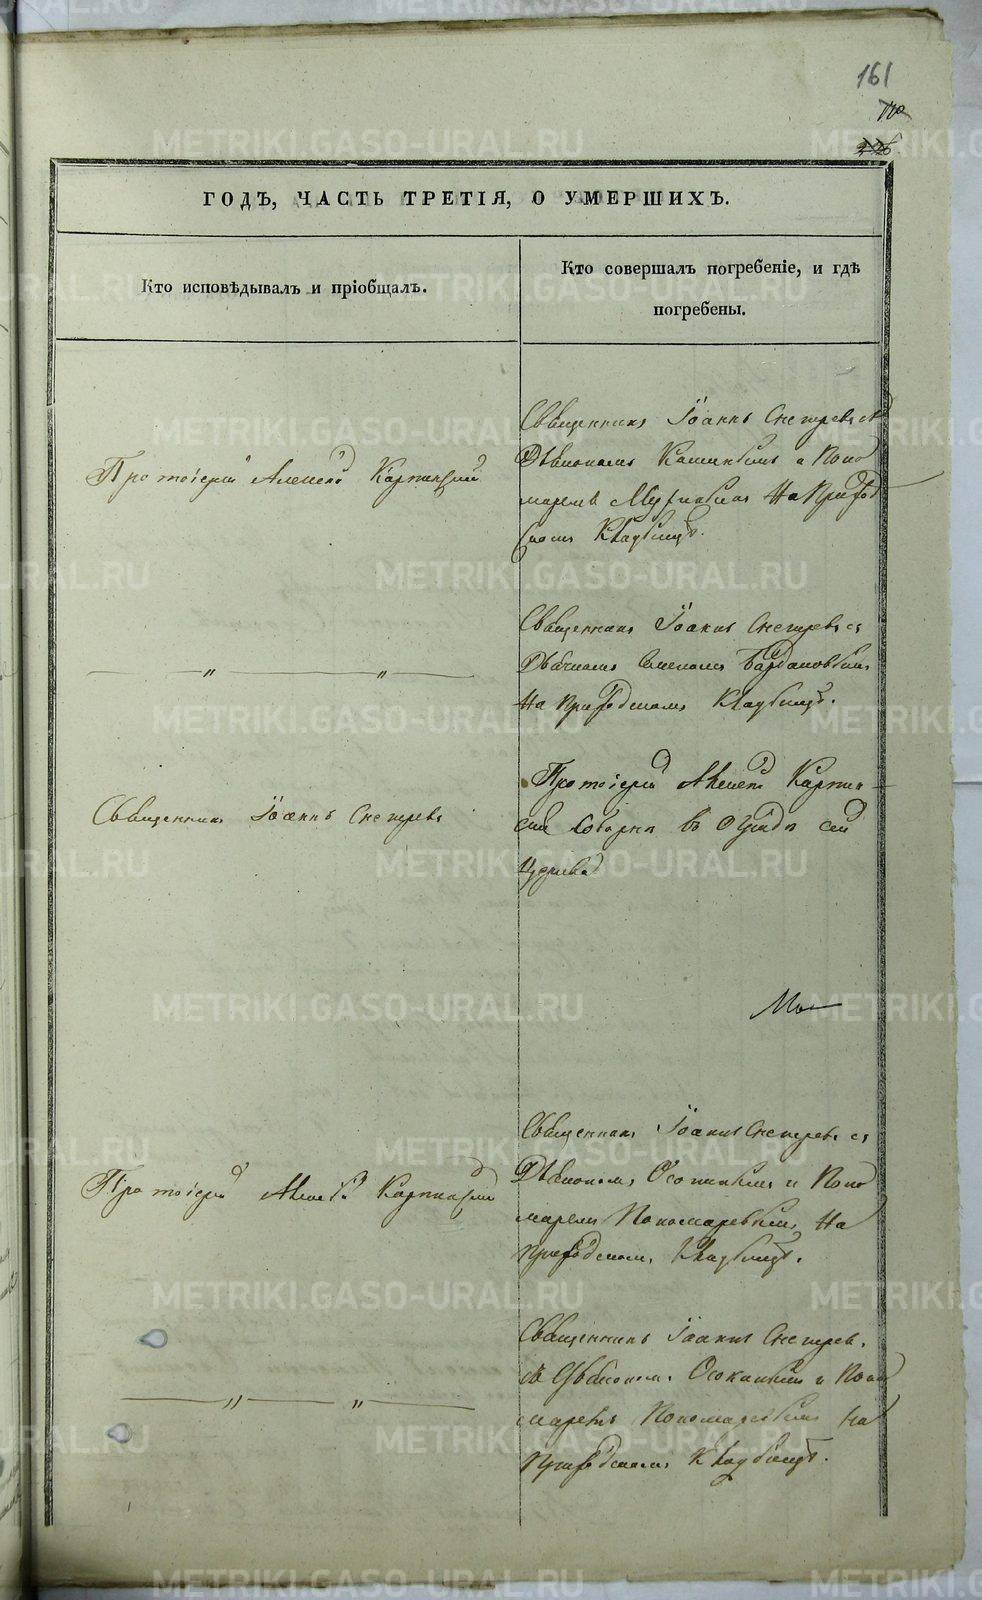 161
170
226
ГОДЪ, ЧАСТЬ ТРЕТІЯ, О УМЕРШИХЪ.
Кто исповѣдывалъ и пріобщалъ.
Кто совершалъ погребеніе, и гдѣ
погребены.
Протоіерей Алексѣй Карпинскій
Священникъ Іоаннъ Снегиревъ съ
Діакономъ и Поно
маремъ На Приход
скомъ Кладбищѣ.
Священникъ Іоаннъ Снегиревъ съ
На приходскомъ Кладбищѣ.
Священникъ Іоаннъ Снегиревъ
Протоіерей Алексѣй Карпин
скій Соборнѣ въ Оградѣ сей
Церкви
Протоіерей Алексѣй Карпинскій
Священникъ Іоаннъ Снегиревъ съ
Діакономъ и Поно
маремъ Пономаревымъ На
Приходскомъ Кладбищѣ.
Священникъ Іоаннъ Снегиревъ
съ Діакономъ и Поно
маремъ Пономаревымъ На
Приходскомъ Кладбищѣ.
METRIKI.GASO-URAL.RU